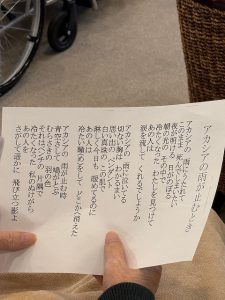 アカシアの雨が止むとき
アカシアの雨にうたれて
このまま死んでしまいたい
夜が明ける 日がのぼる
朝の光の その中で
冷たくなった わたしを見つけて
あの人は
涙を流して くれるでしょうか
アカシアの 雨に泣いてる
切ない胸は わかるまい
思い出の ペンダント
白い真珠の この肌で
淋しく今日も 暖めてるのに
あの人は
冷たい瞳(め)をして どこかへ消えた
アカシアの 雨が止む時
青空さして 鳩がとぶ
むらさきの 羽の色
それはベンチの 片隅で
冷たくなった 私のぬけがら
あの人を
さがして遥かに 飛び立つ影よ